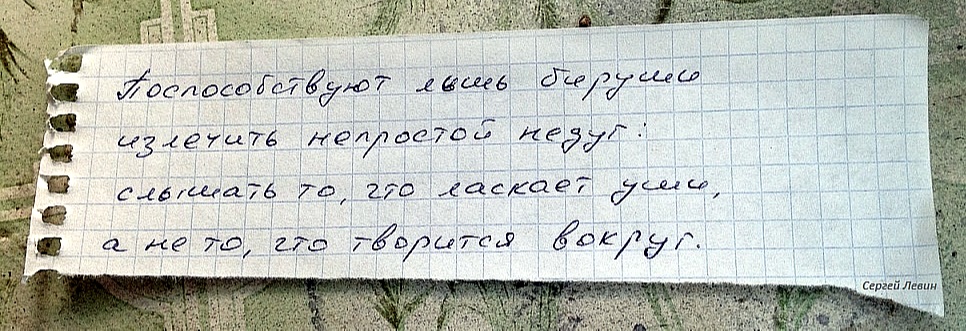 Поспособствуют лишь беруши
излечить непростой недуг:
слышать то, что ласкает уши,
а не то, что творится вокруг.
Сергей Левин